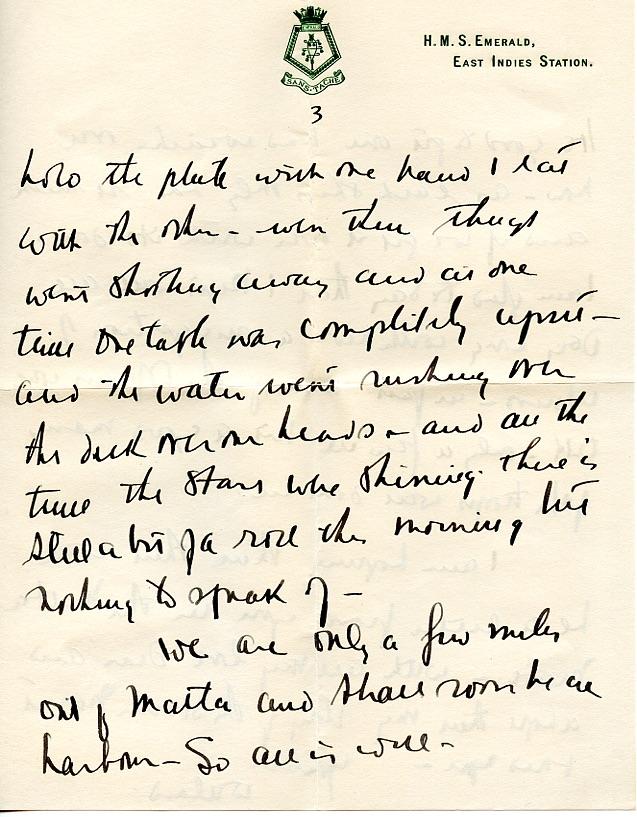 SANS TACHE
H.M.S. EMERALD,
EAST INDIES STATION.
3
hold the plate with one hand & eat
with the other – even then things
went shooting away and at one
time one table was completely upset –
and the water went rushing over
the deck over our heads – and all the
time the stars were shining. There is
still a bit of a roll this morning but
nothing to speak of –
We are only a few miles
out of Malta and shall soon be in
harbour – So all is well –